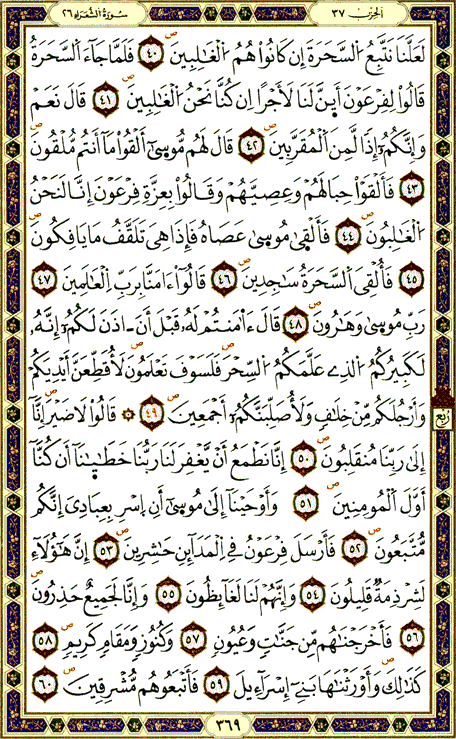 الحزب ٣٧
سورة الشعراء ٢٦
لَعَلَّنَا نَتَّبِعُ السَّحَرَةَ إِن كَانُواْ هُمُ الْغَٰلِبِينَ ٤٠ فَلَمَّا جَآءَ السَّحَرَةُ
قَالُواْ لِفِرْعَوْنَ أَئِنَّ لَنَا لَأَجْرًا إِن كُنَّا نَحْنُ الْغَٰلِبِينَ ٤١ قَالَ نَعَمْ
وَإِنَّكُمُۥٓ إِذًا لَّمِنَ الْمُقَرَّبِينَ ٤٢ قَالَ لَهُم مُّوسَىٰٓ أَلْقُواْ مَآ أَنتُم مُّلْقُونَ
٤٣ فَأَلْقَوْاْ حِبَالَهُمْ وَعِصِيَّهُمْ وَقَالُواْ بِعِزَّةِ فِرْعَوْنَ إِنَّا لَنَحْنُ
الْغَٰلِبُونَ ٤٤ فَأَلْقَىٰ مُوسَىٰ عَصَاهُ فَإِذَا هِيَ تَلَقَّفُ مَا يَافِكُونَ
٤٥ فَأُلْقِيَ السَّحَرَةُ سَٰجِدِينَ ٤٦ قَالُوٓاْ ءَامَنَّا بِرَبِّ الْعَٰلَمِينَ ٤٧
رَبِّ مُوسَىٰ وَهَٰرُونَ ٤٨ قَالَ ءَا۬مَنتُمْ لَهُۥ قَبْلَ أَنَ اٰذَنَ لَكُمُۥٓ إِنَّهُۥ
لَكَبِيرُكُمُ الَّذِي عَلَّمَكُمُ السِّحْرَ فَلَسَوْفَ تَعْلَمُونَ لَأُقَطِّعَنَّ أَيْدِيَكُمْ
وَأَرْجُلَكُم مِّنْ خِلَٰفٍ وَلَأُصَلِّبَنَّكُمُۥٓ أَجْمَعِينَ ٤٩ ۞ قَالُواْ لَا ضَيْرَ إِنَّآ
ربع
إِلَىٰ رَبِّنَا مُنقَلِبُونَ ٥٠ إِنَّا نَطْمَعُ أَنْ يَّغْفِرَ لَنَا رَبُّنَا خَطَٰيَٰنَآ أَن كُنَّآ
أَوَّلَ الْمُومِنِينَ ٥١ وَأَوْحَيْنَآ إِلَىٰ مُوسَىٰٓ أَنِ اِسْرِ بِعِبَادِيَ إِنَّكُم
مُّتَّبَعُونَ ٥٢ فَأَرْسَلَ فِرْعَوْنُ فِي الْمَدَآئِنِ حَٰشِرِينَ ٥٣ إِنَّ هَٰٓؤُلَآءِ
لَشِرْذِمَةٌ قَلِيلُونَ ٥٤ وَإِنَّهُمْ لَنَا لَغَآئِظُونَ ٥٥ وَإِنَّا لَجَمِيعٌ حَذِرُونَ
٥٦ فَأَخْرَجْنَٰهُم مِّن جَنَّٰتٍ وَعُيُونٍ ٥٧ وَكُنُوزٍ وَمَقَامٍ كَرِيمٍ ٥٨
كَذَٰلِكَ وَأَوْرَثْنَٰهَا بَنِيٓ إِسْرَآءِيلَ ٥٩ فَأَتْبَعُوهُم مُّشْرِقِينَ ٦٠
٣٦٩